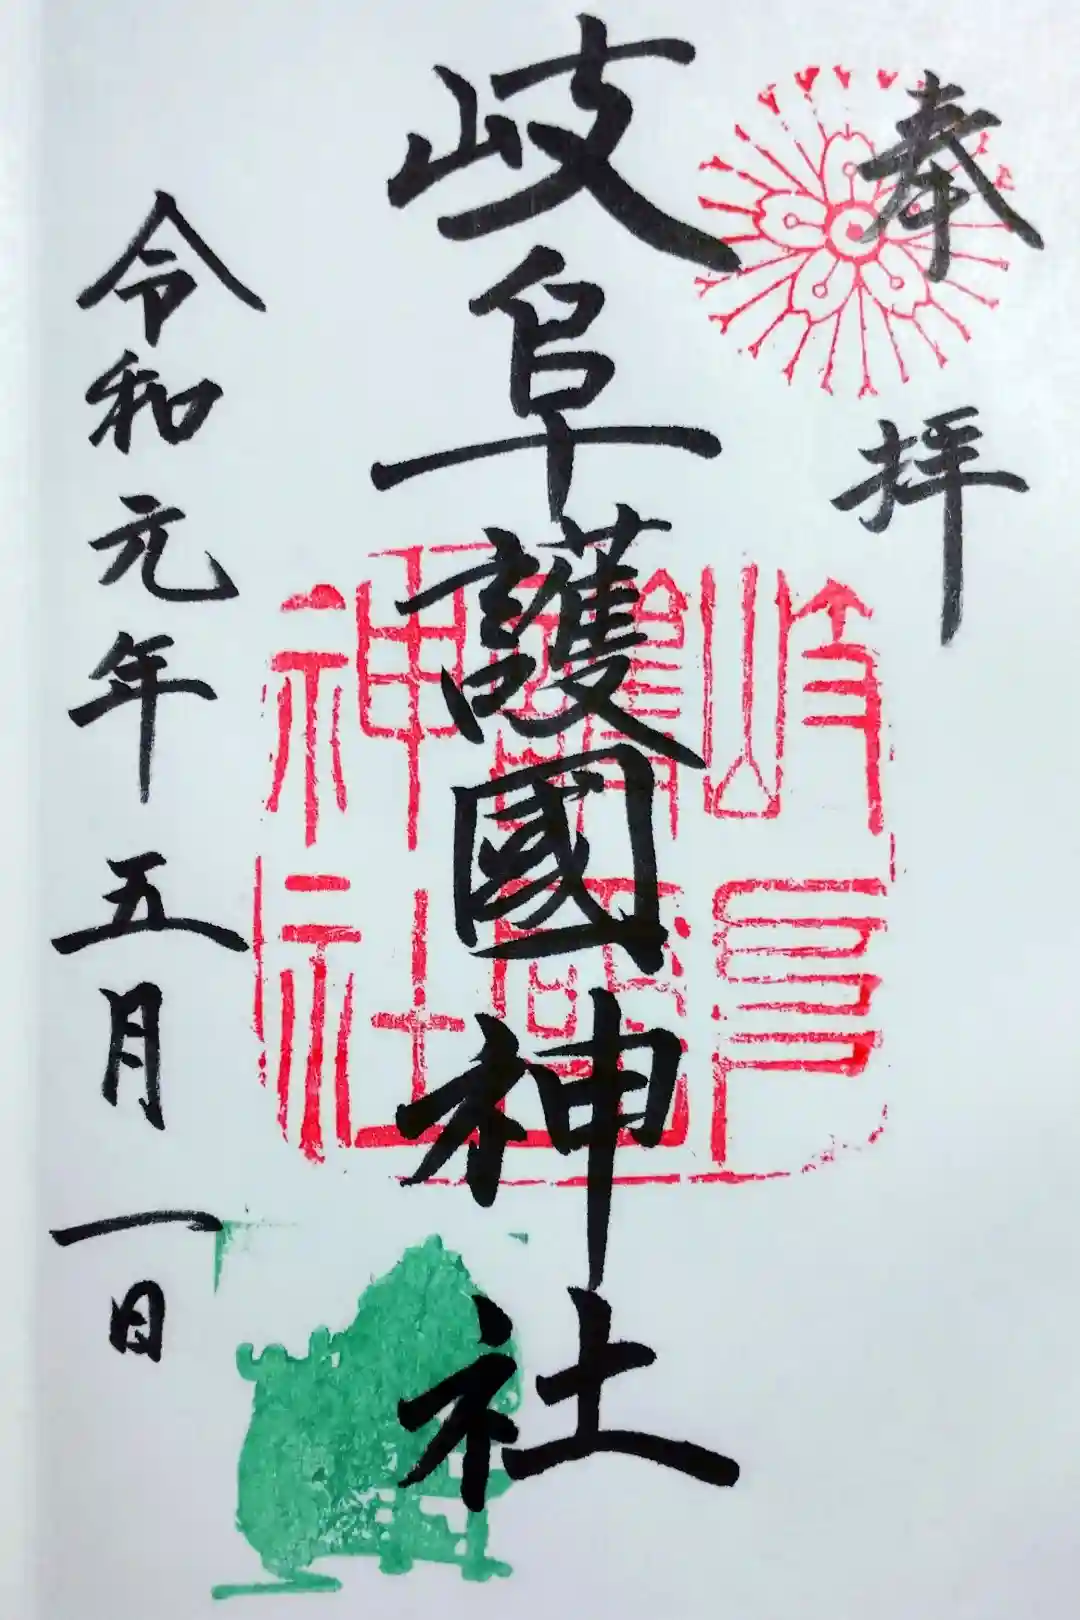 奉拝
岐阜護國神社
岐阜
護國
神社
令和元年五月一日